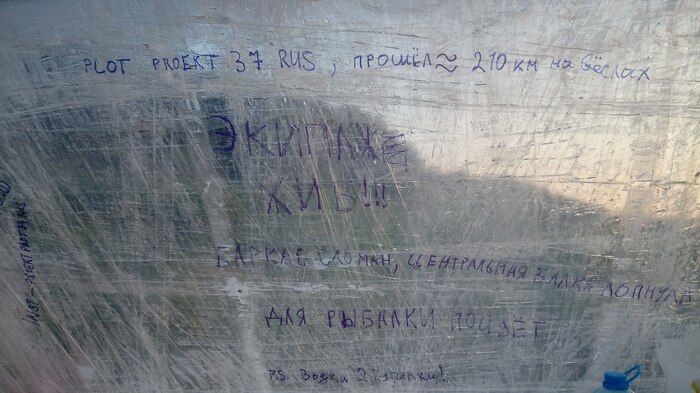 PLOT PROEKT 37 RUS, ПРОШЁЛ ≈ 210 км на вёслах
ЭКИПАЖЕ
ЖИВ!!!
БАРКАС СЛОМАН, ЦЕНТРАЛЬНАЯ БАЛКА ЛОПНУЛА
ДЛЯ РЫБАЛКИ ПОЙДЁТ
P.S. Водки 2